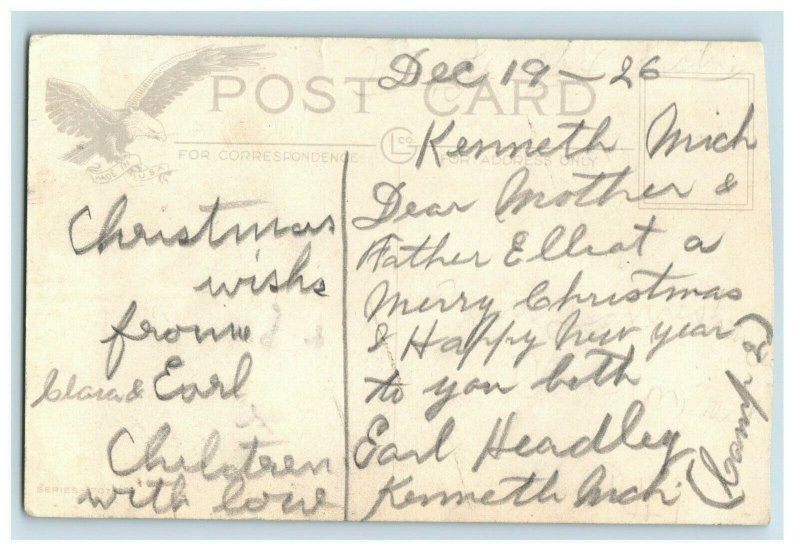 POST CARD
MADE IN U.S.A.
FOR CORRESPONDENCE
FOR ADDRESS ONLY
Christmas
wishs
from
Clara & Earl
Children
with love
SERIES
Dec 19 - 26
Kenneth Mich
Dear Mother &
Father Elliot a
Merry Christmas
& Happy New year
to you both
Earl Headley
Kenneth Mich
Camp 8